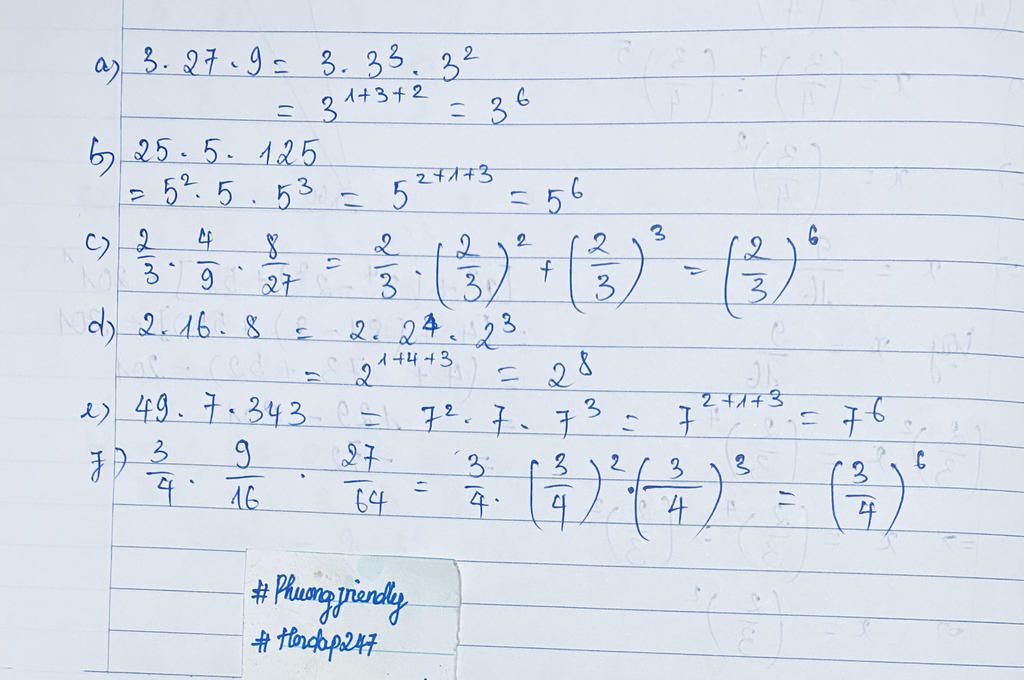 a) 3 . 27 . 9 = 3 . 3³ . 3²
= 3¹⁺³⁺² = 3⁶
b) 25 . 5 . 125
= 5² . 5 . 5³ = 5²⁺¹⁺³ = 5⁶
c) 2/3 . 4/9 . 8/27 = 2/3 . (2/3)² + (2/3)³ = (2/3)⁶
d) 2 . 16 . 8 = 2 . 2⁴ . 2³
= 2¹⁺⁴⁺³ = 2⁸
e) 49 . 7 . 343 = 7² . 7 . 7³ = 7²⁺¹⁺³ = 7⁶
f) 3/4 . 9/16 . 27/64 = 3/4 . (3/4)² . (3/4)³ = (3/4)⁶
# Phuongfriendly
# Hoidap247